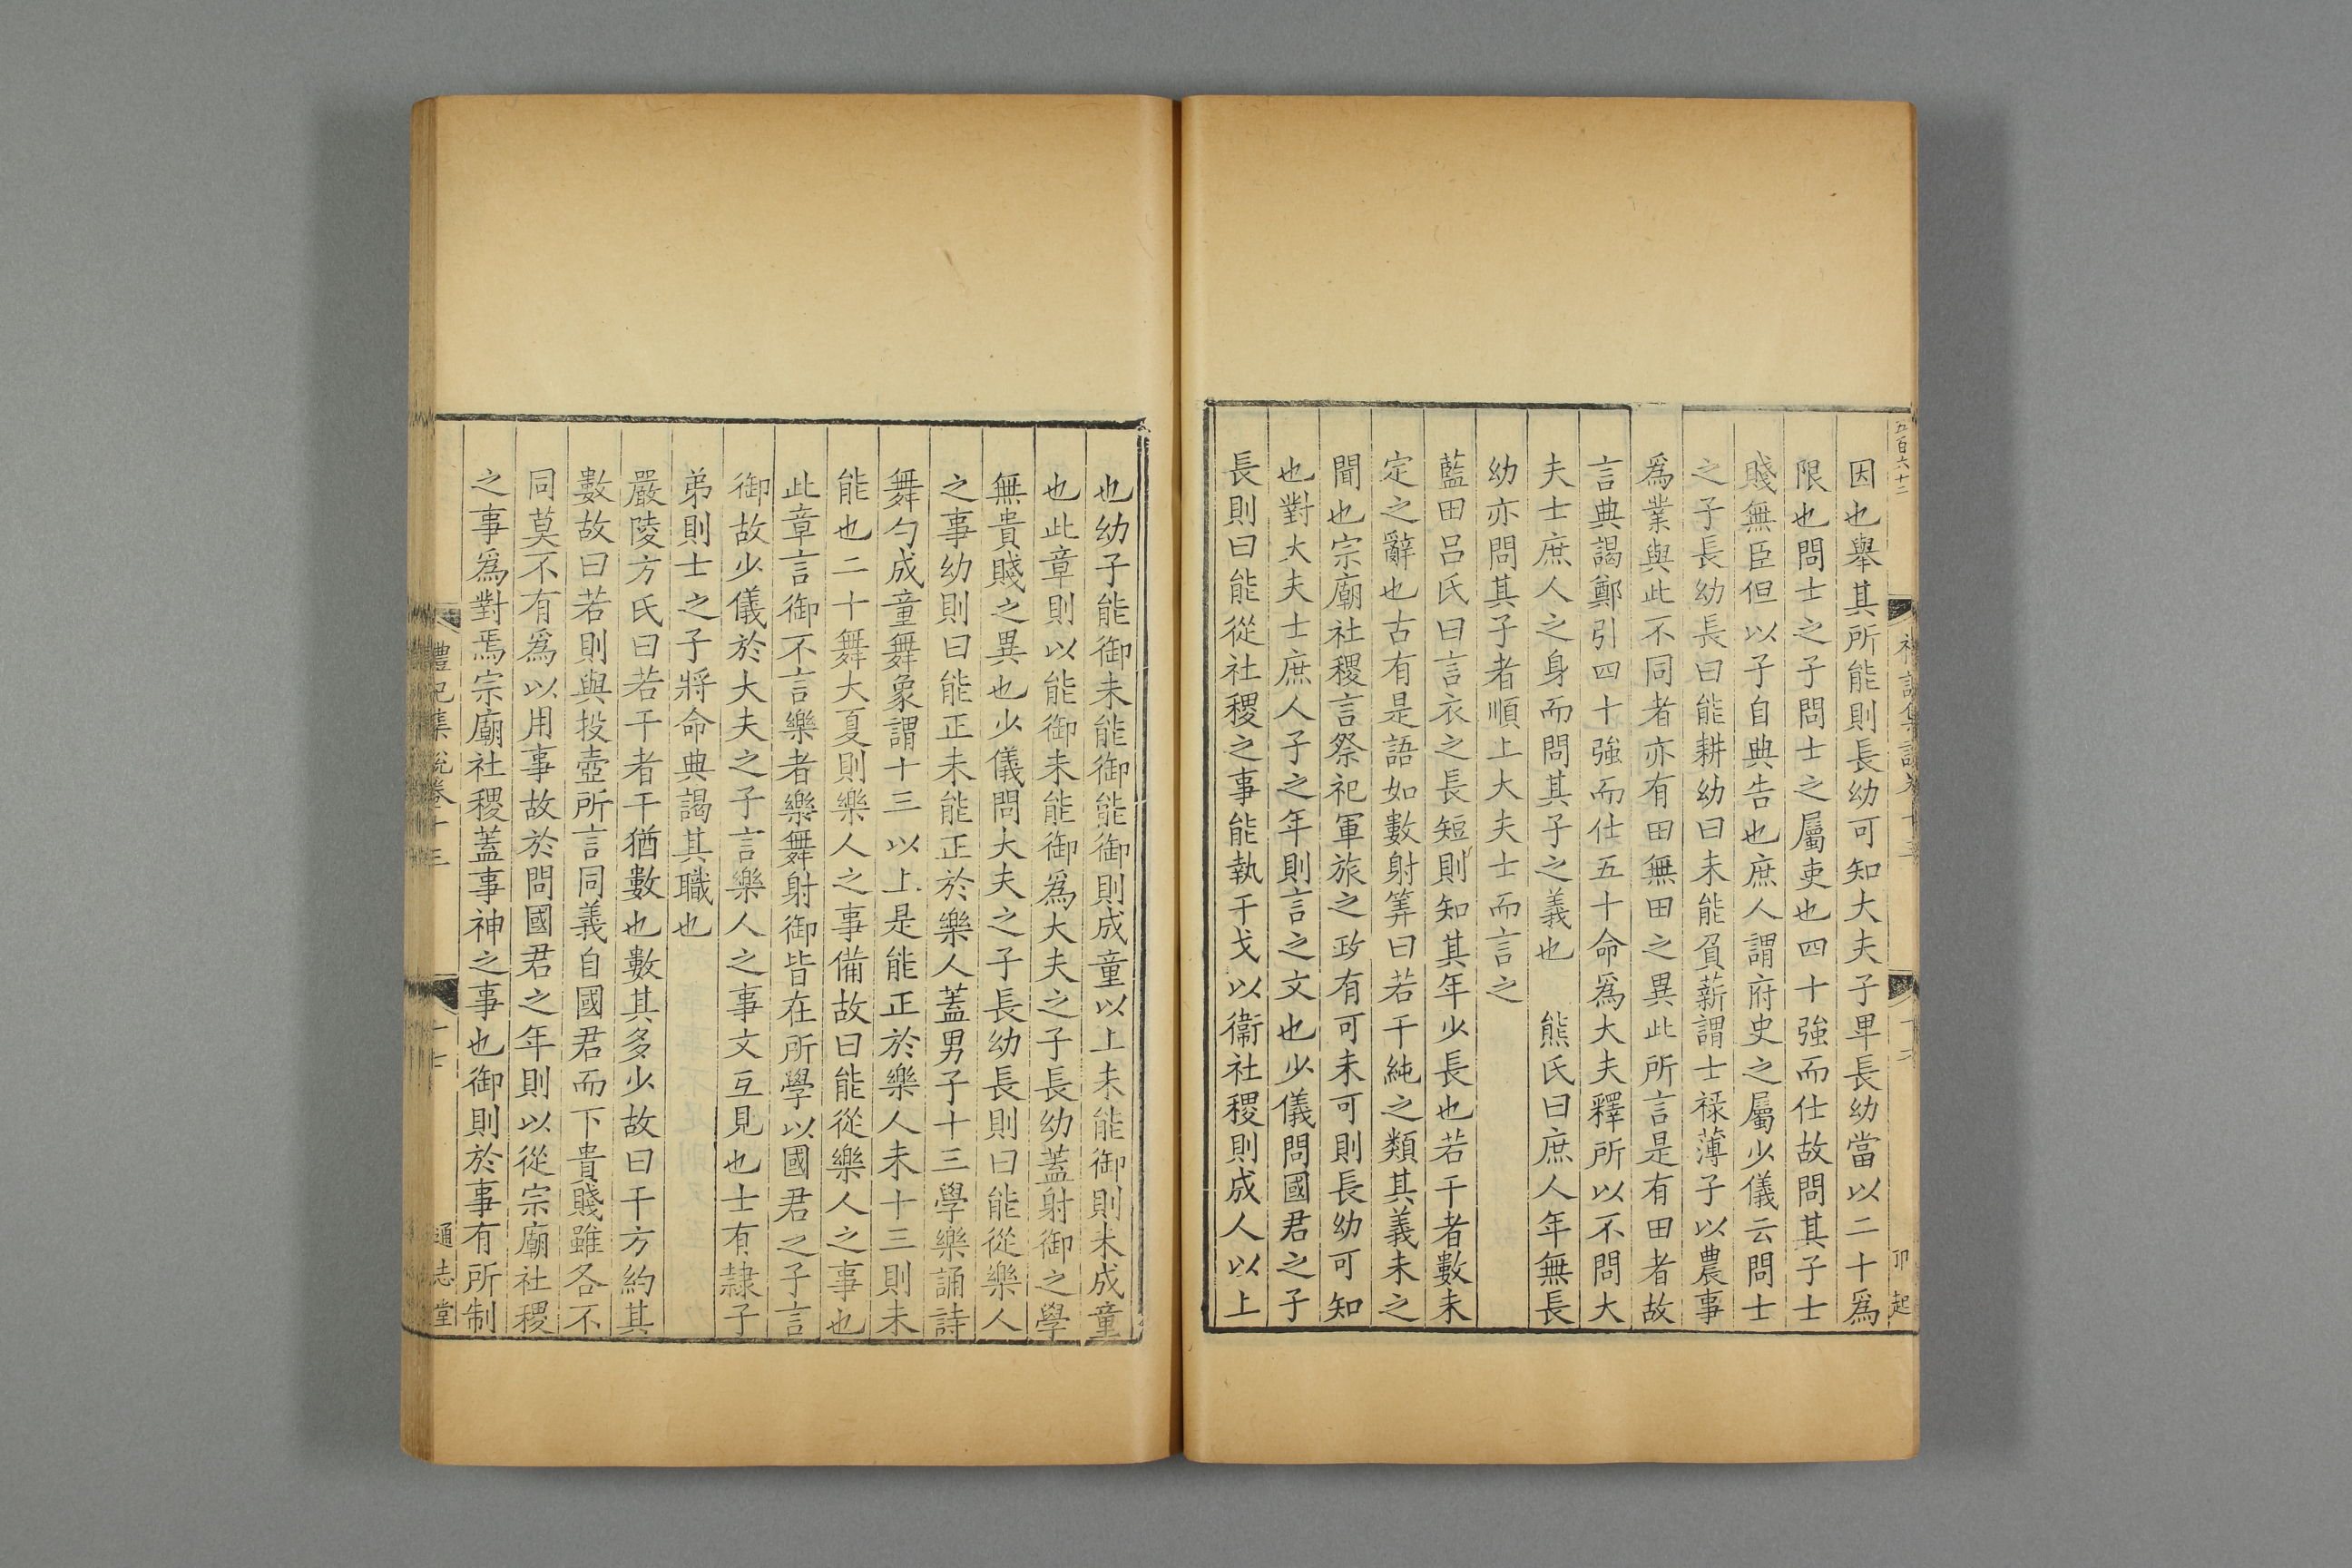 五百六十二
因也舉其所能則長幼可知大夫子卑長幼當以二十爲
限也問士之子問士之屬吏也四十強而仕故問其子士
賤無臣但以子自典告也庶人謂府史之屬少儀云問士
之子長幼長曰能耕幼曰未能負薪謂士祿薄子以農事
爲業與此不同者亦有田無田之異此所言是有田者故
言典謁鄭引四十強而仕五十命爲大夫釋所以不問大
夫士庶人之身而問其子之義也 熊氏曰庶人年無長
幼亦問其子者順上大夫士而言之
藍田呂氏曰言衣之長短則知其年少長也若干者數未
定之辭也古有是語如數射筭曰若干純之類其義未之
聞也宗廟社稷言祭祀軍旅之政有可未可則長幼可知
也對大夫士庶人子之年則言之文也少儀問國君之子
長則曰能從社稷之事能執干戈以衞社稷則成人以上
也幼子能御未能御能御則成童以上未能御則未成童
也此章則以能御未能御爲大夫之子長幼蓋射御之學
無貴賤之異也少儀問大夫之子長幼長則曰能從樂人
之事幼則曰能正未能正於樂人蓋男子十三學樂誦詩
舞勺成童舞象謂十三以上是能正於樂人未十三則未
能也二十舞大夏則樂人之事備故曰能從樂人之事也
此章言御不言樂者樂舞射御皆在所學以國君之子言
御故少儀於大夫之子言樂人之事文互見也士有隷子
弟則士之子將命典謁其職也
嚴陵方氏曰若干者干猶數也數其多少故曰干方約其
數故曰若則與投壺所言同義自國君而下貴賤雖各不
同莫不有爲以用事故於問國君之年則以從宗廟社稷
之事爲對焉宗廟社稷蓋事神之事也御則於事有所制
禮記集說卷十三
通志堂